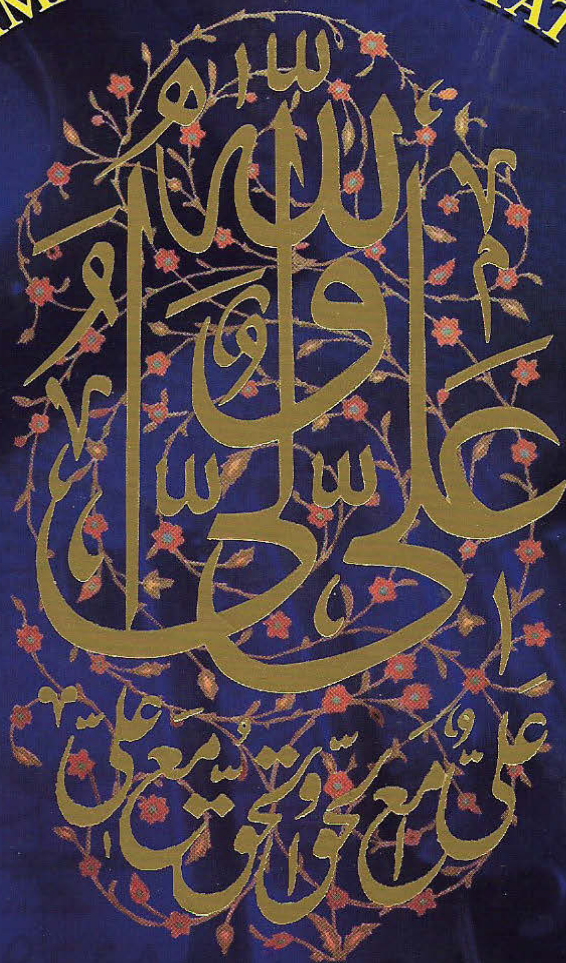 علی ولی الله
علیٌّ مع الحق والحق مع علی